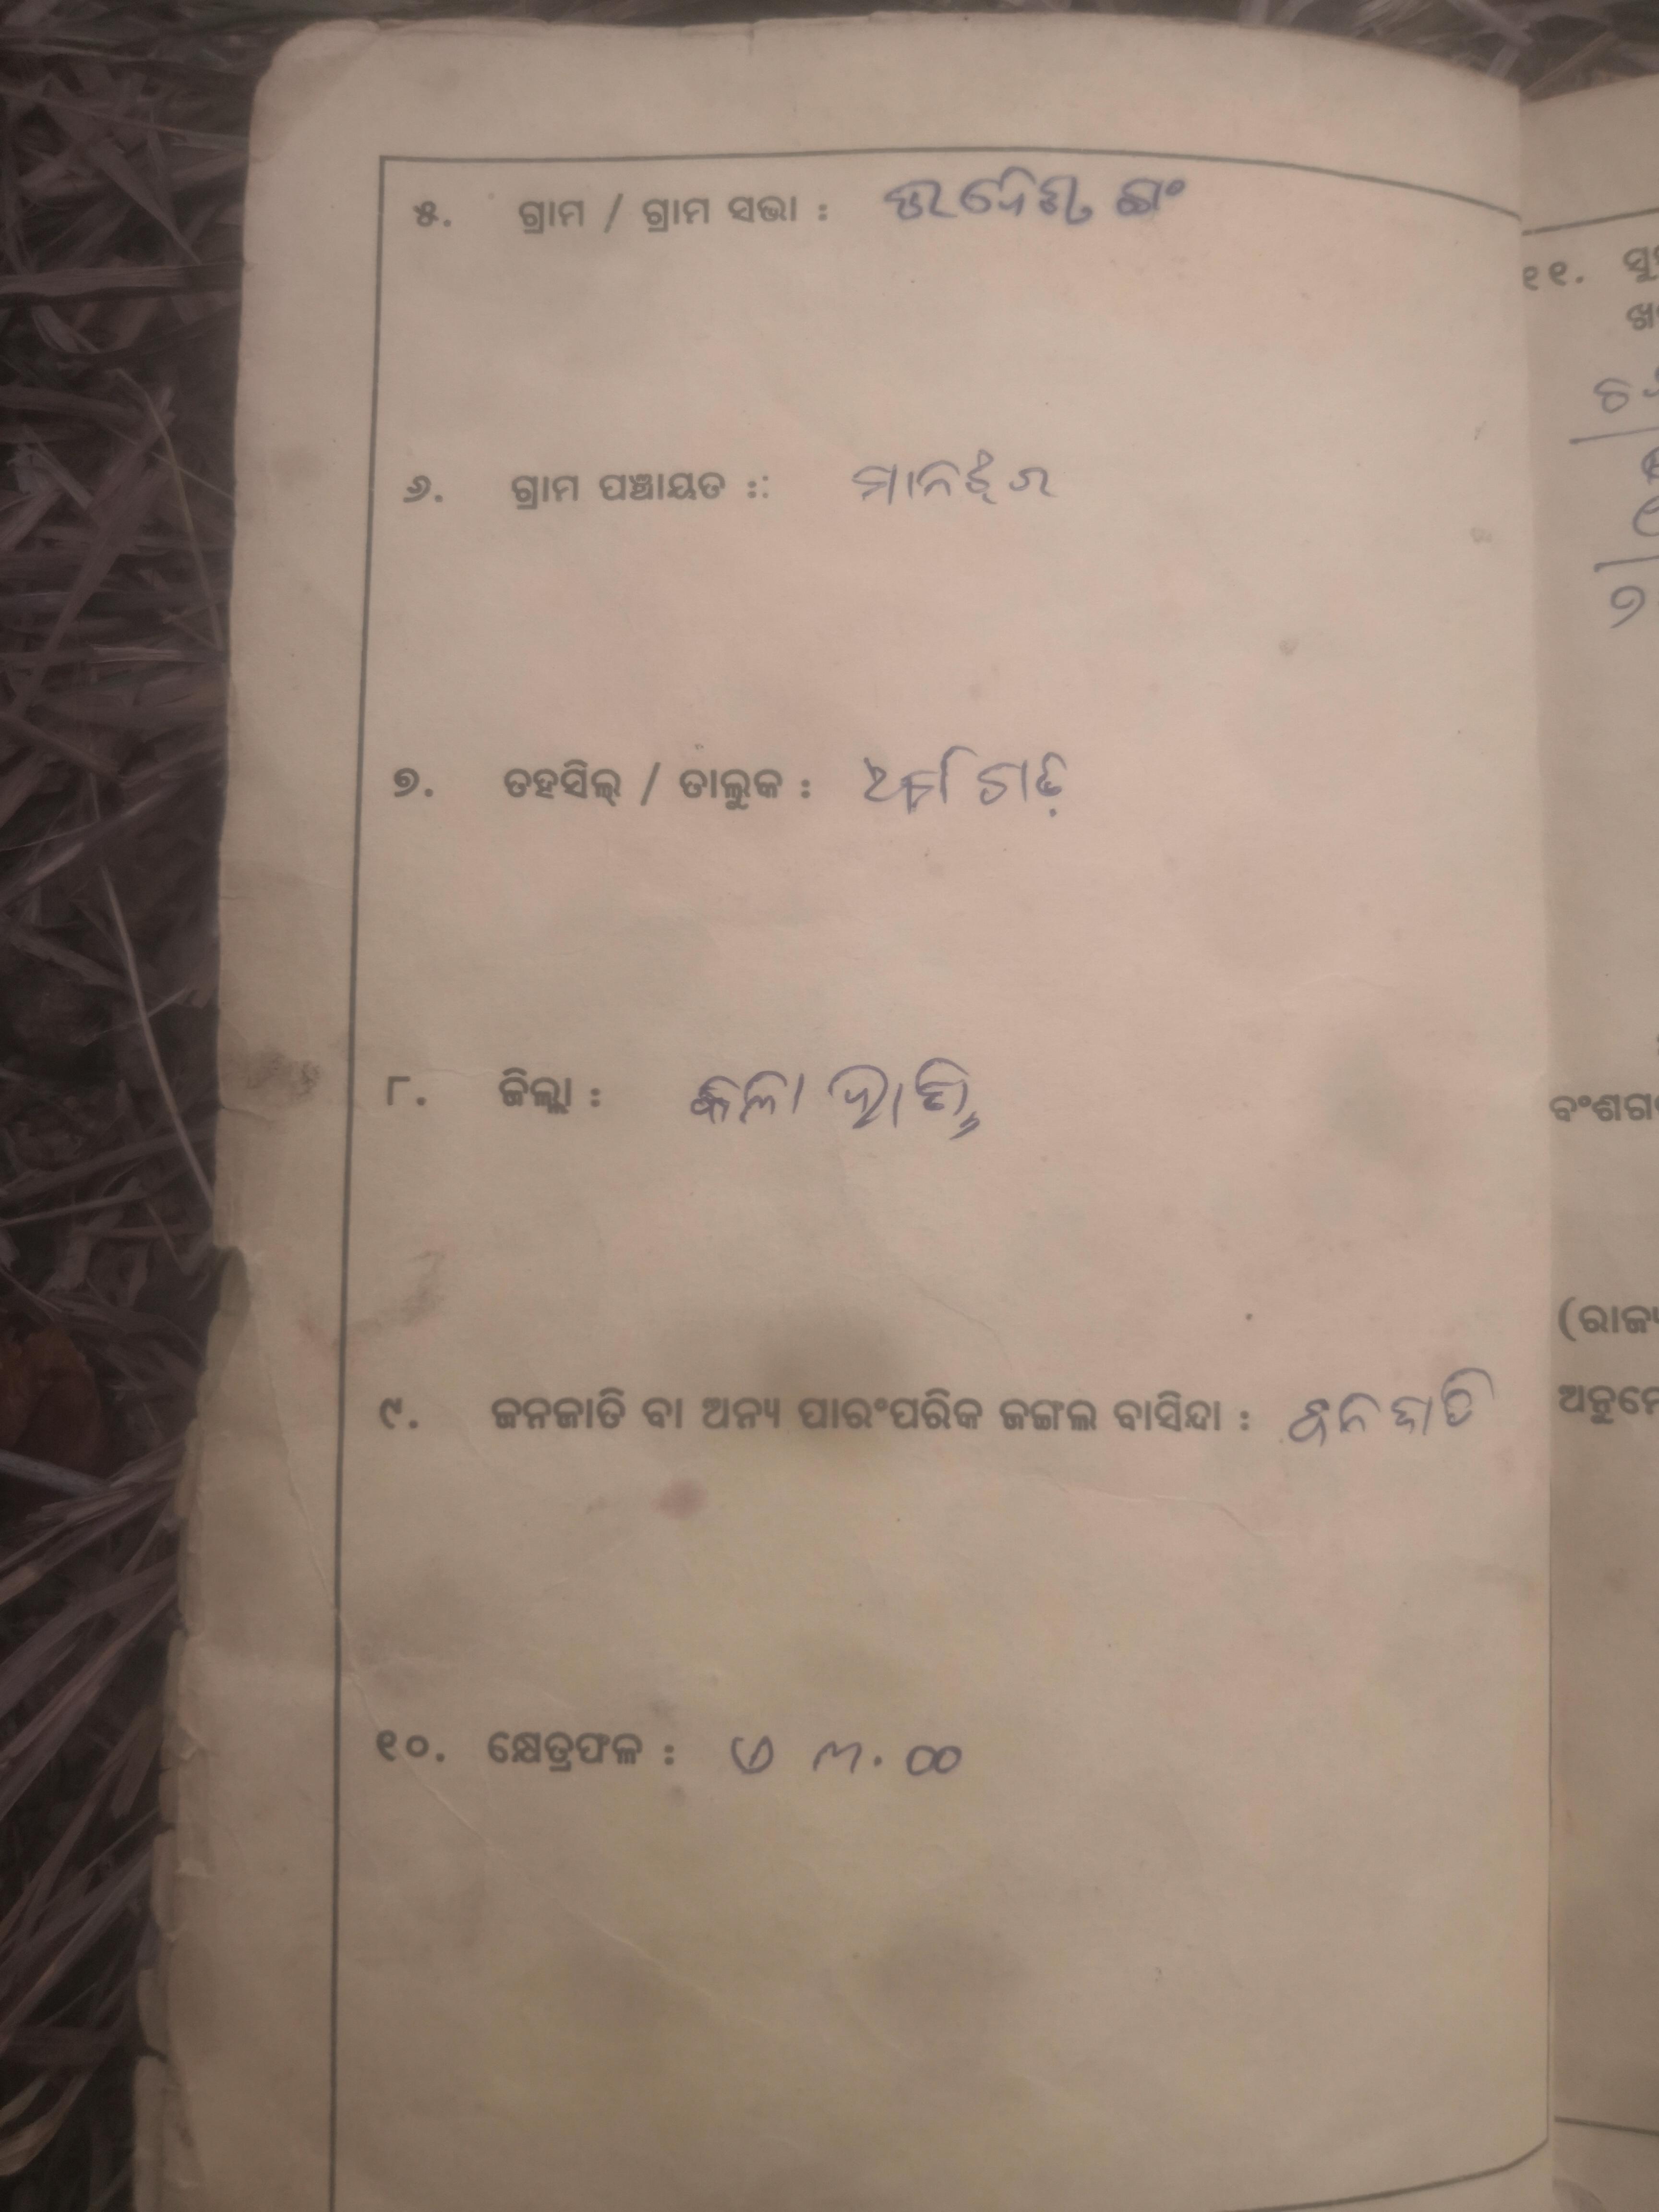 ୫. ଗ୍ରାମ / ଗ୍ରାମ ସଭା :
୬. ଗ୍ରାମ ପଞ୍ଚାୟତ :: ମାନଝର
୭. ତହସିଲ୍ / ତାଲୁକ : ଧର୍ମଗଡ଼
୮. ଜିଲ୍ଲା : କଳାହାଣ୍ଡି
୯. ଜନଜାତି ବା ଅନ୍ୟ ପାରଂପରିକ ଜଙ୍ଗଲ ବାସିନ୍ଦା : ଜନଜାତି
୧୦. କ୍ଷେତ୍ରଫଳ : ୭ ୩.୦୦
୧୧.